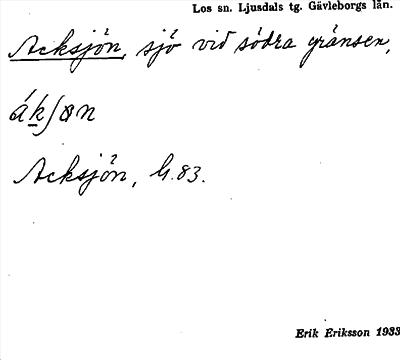 Los sn. Ljusdals tg. Gävleborgs län.
Acksjön, sjö vid södra gränsen,
ák∫øn
Acksjön, G.83.
Erik Eriksson 1933